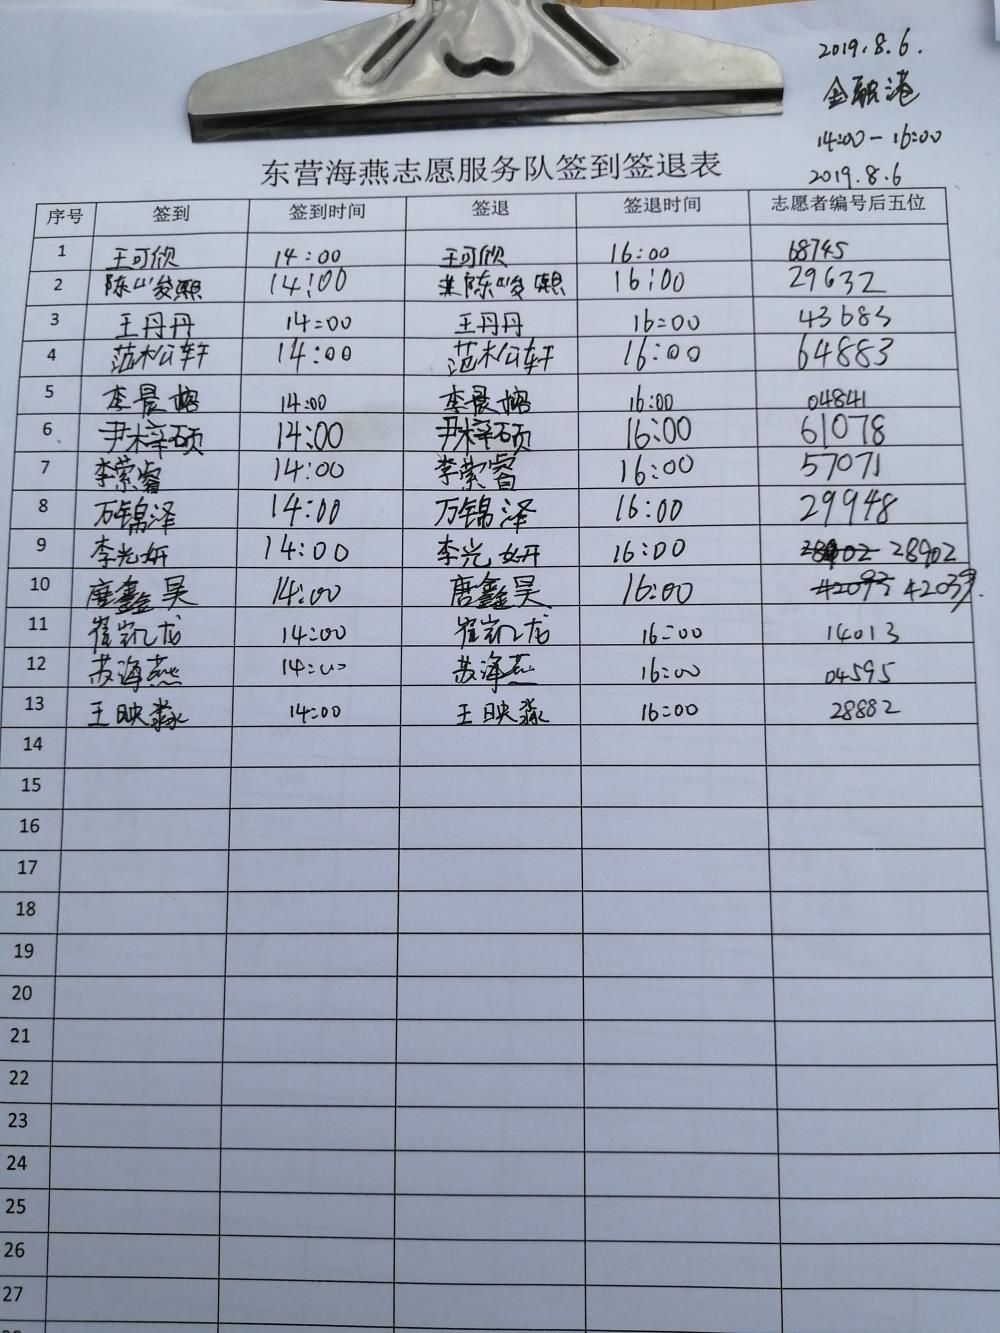 2019.8.6.
金融港
14:00-16:00
2019.8.6
东营海燕志愿服务队签到签退表
序号 签到 签到时间 签退 签退时间 志愿者编号后五位
1 王可欣 14:00 王可欣 16:00 68745
2 陈峻熙 14:00 陈峻熙 16:00 29632
3 王丹丹 14:00 王丹丹 16:00 43683
4 范松轩 14:00 范松轩 16:00 64883
5 李晨榕 14:00 李晨榕 16:00 04841
6 尹梓硕 14:00 尹梓硕 16:00 61078
7 李萦睿 14:00 李萦睿 16:00 57071
8 万锦泽 14:00 万锦泽 16:00 29948
9 李光妍 14:00 李光妍 16:00 28902
10 唐鑫昊 14:00 唐鑫昊 16:00 42039
11 崔凯龙 14:00 崔凯龙 16:00 14013
12 苏海燕 14:00 苏海燕 16:00 04595
13 王映淼 14:00 王映淼 16:00 28882
14
15
16
17
18
19
20
21
22
23
24
25
26
27